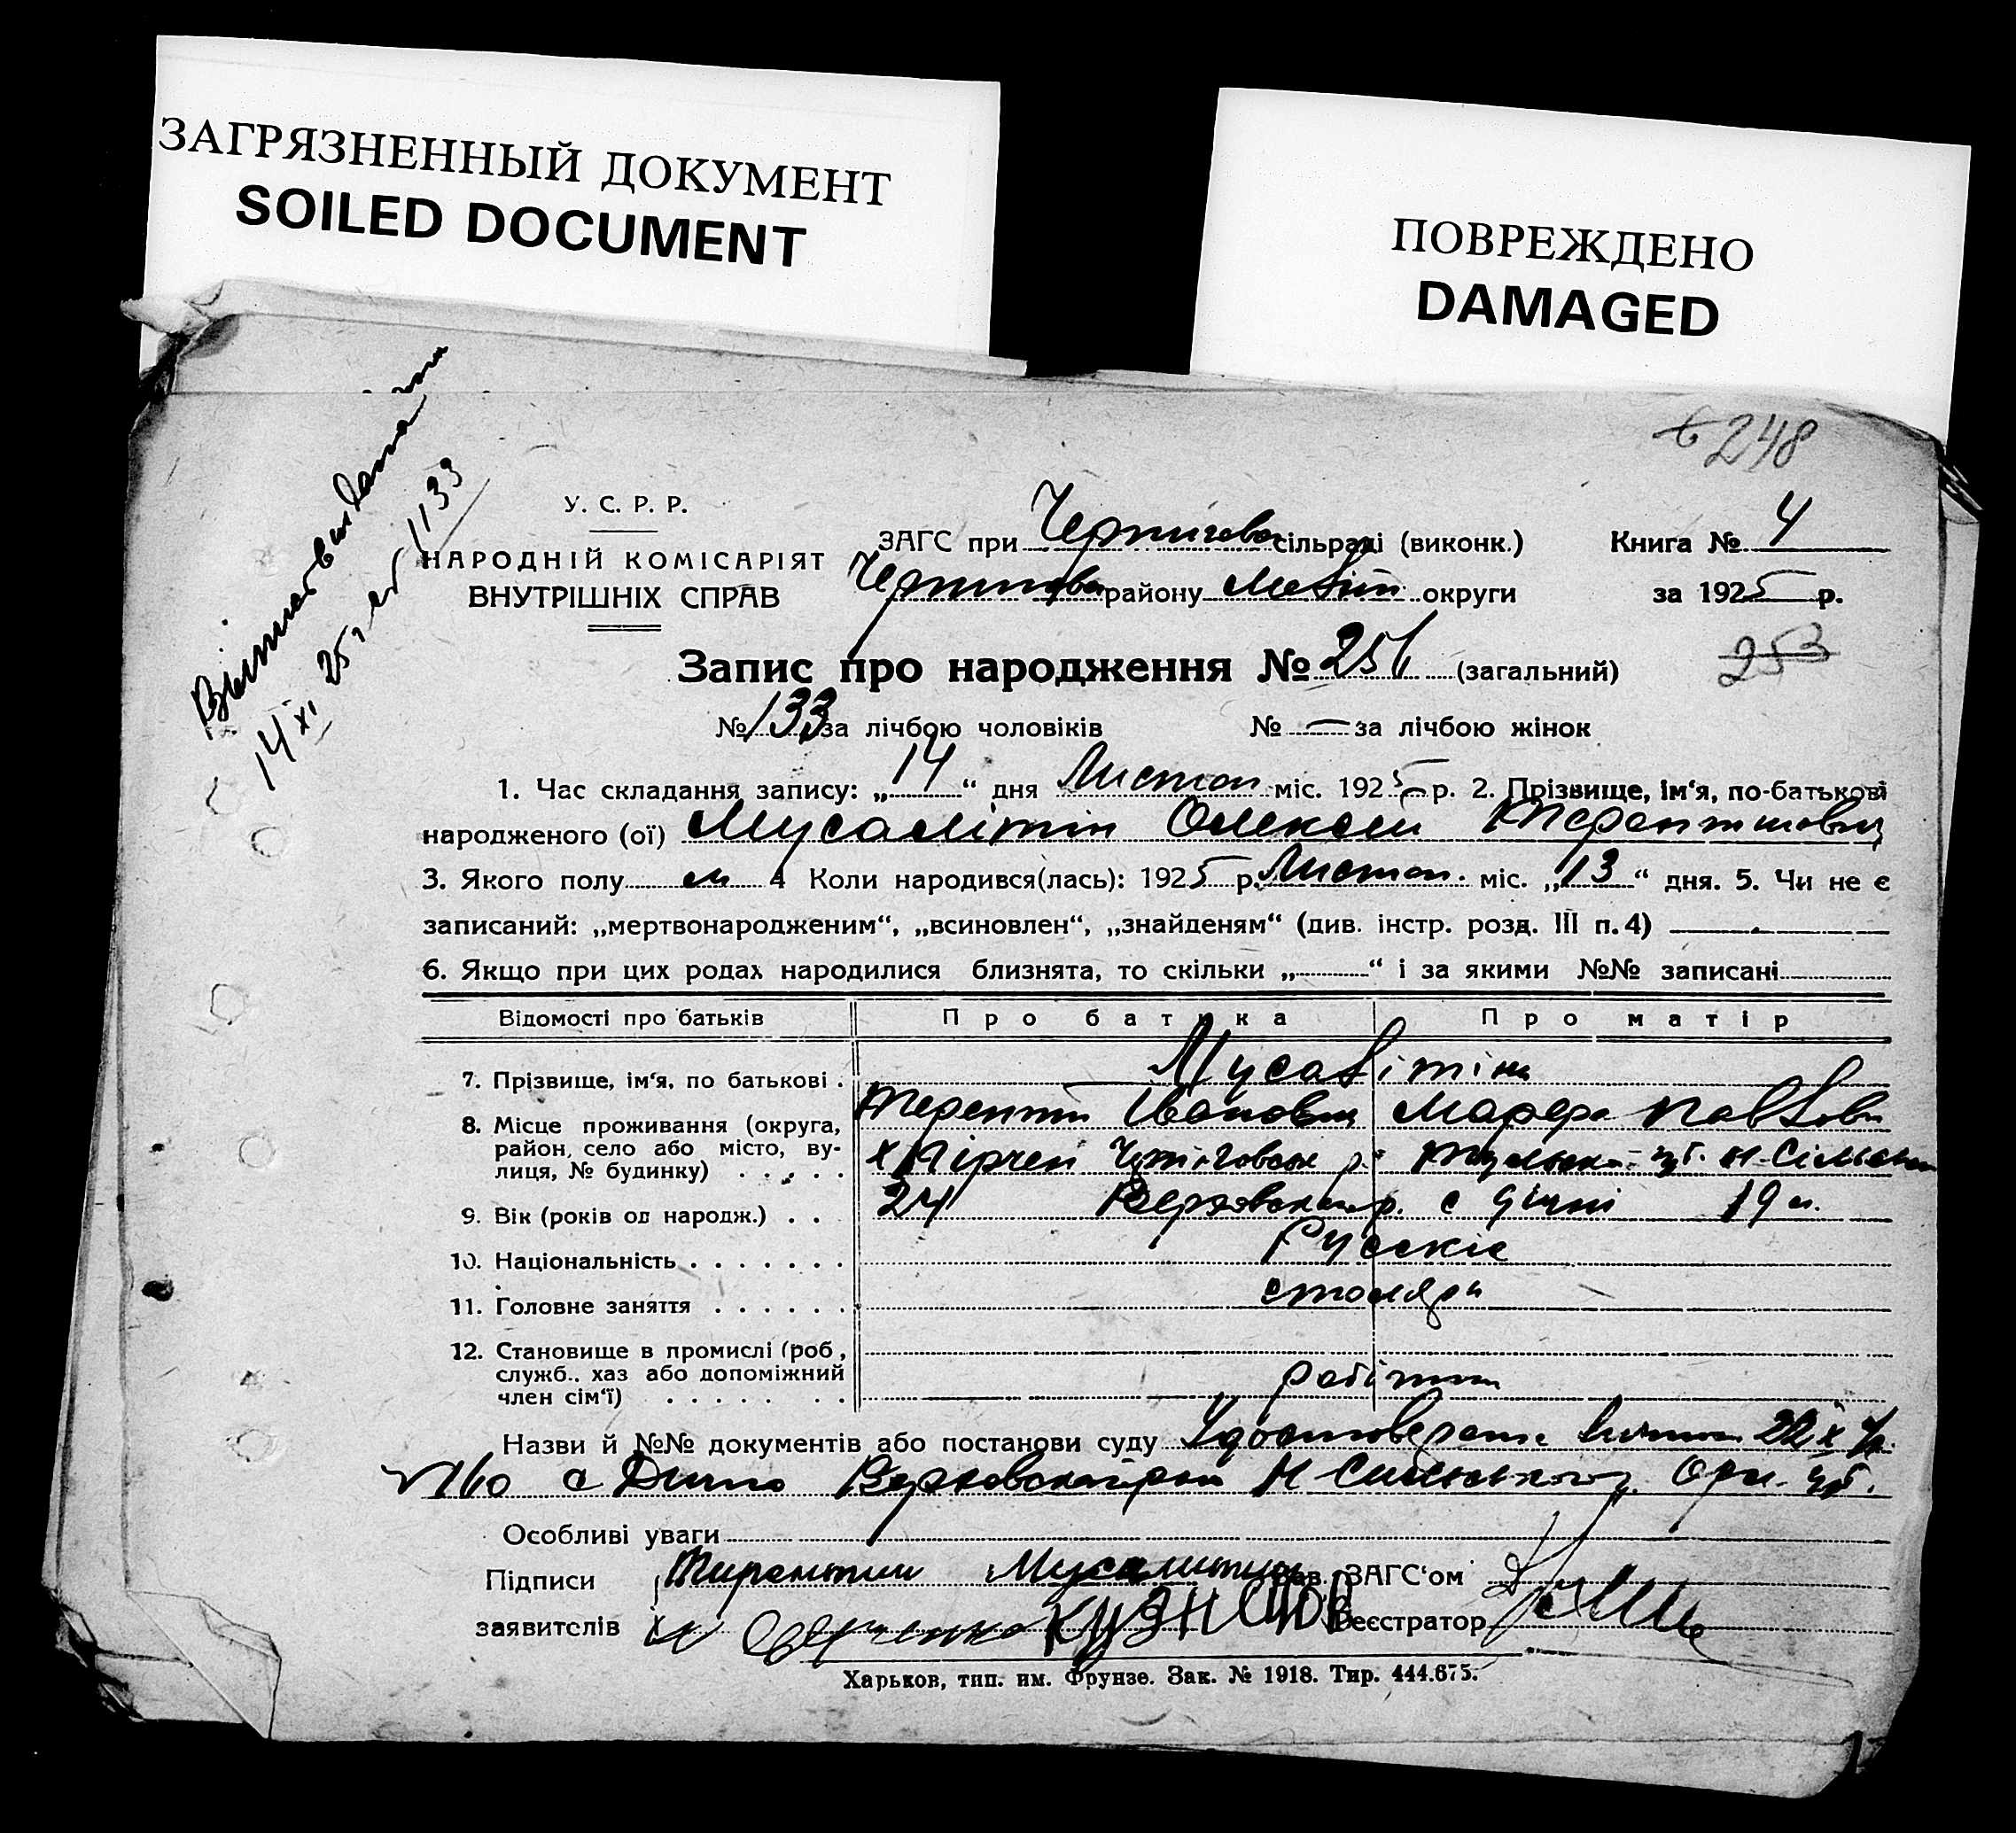 ЗАГРЯЗНЕННЫЙ ДОКУМЕНТ
SOILED DOCUMENT
ПОВРЕЖДЕНО
DAMAGED
248
14 XI 25 1133
У. С. Р. Р.
НАРОДНІЙ КОМІСАРІЯТ
ВНУТРІШНІХ СПРАВ
ЗАГС при Чернигов сільраді (виконк.) Книга № 4
району округи за 1925 р.
Запис про народження № 256 (загальний) 253
№ 133 за лічбою чоловіків № — за лічбою жінок
1. Час складання запису: „14“ дня Листоп міс. 1925 р. 2. Прізвище, ім‘я, по-батькові
народженого (ої) Мусалітін Олексій Терентиович
3. Якого полу м 4 Коли народився(лась): 1925 р. Листоп. міс. „13“ дня. 5. Чи не є
записаний: „мертвонародженим“, „всиновлен“, „знайденям“ (див. інстр. розд. III п. 4) —
6. Якщо при цих родах народилися близнята, то скільки „ “ і за якими №№ записані
Відомості про батьків Про батька Про матір
7. Прізвище, ім‘я, по батькові . Мусалітіни
Терентій Іванович Марфа Павловн
8. Місце проживання (округа,
район, село або місто, ву-
лиця, № будинку) . . . . .
9. Вік (років од народж.) . . 24 19
10. Національність . . . . . . . Русскіе
11. Головне заняття . . . . . . столяри
12. Становище в промислі (роб,
служб., хаз або допоміжний
член сім‘ї) . . . . . . . робітни
Назви й №№ документів або постанови суду Удостоверени 22
№ 160 с Верховской
Особливі уваги
Підписи Мусалитин Зав. ЗАГС‘ом
заявителів Кузнецов Реєстратор
Харьков, тип. им. Фрунзе. Зак. № 1918. Тир. 444.675.